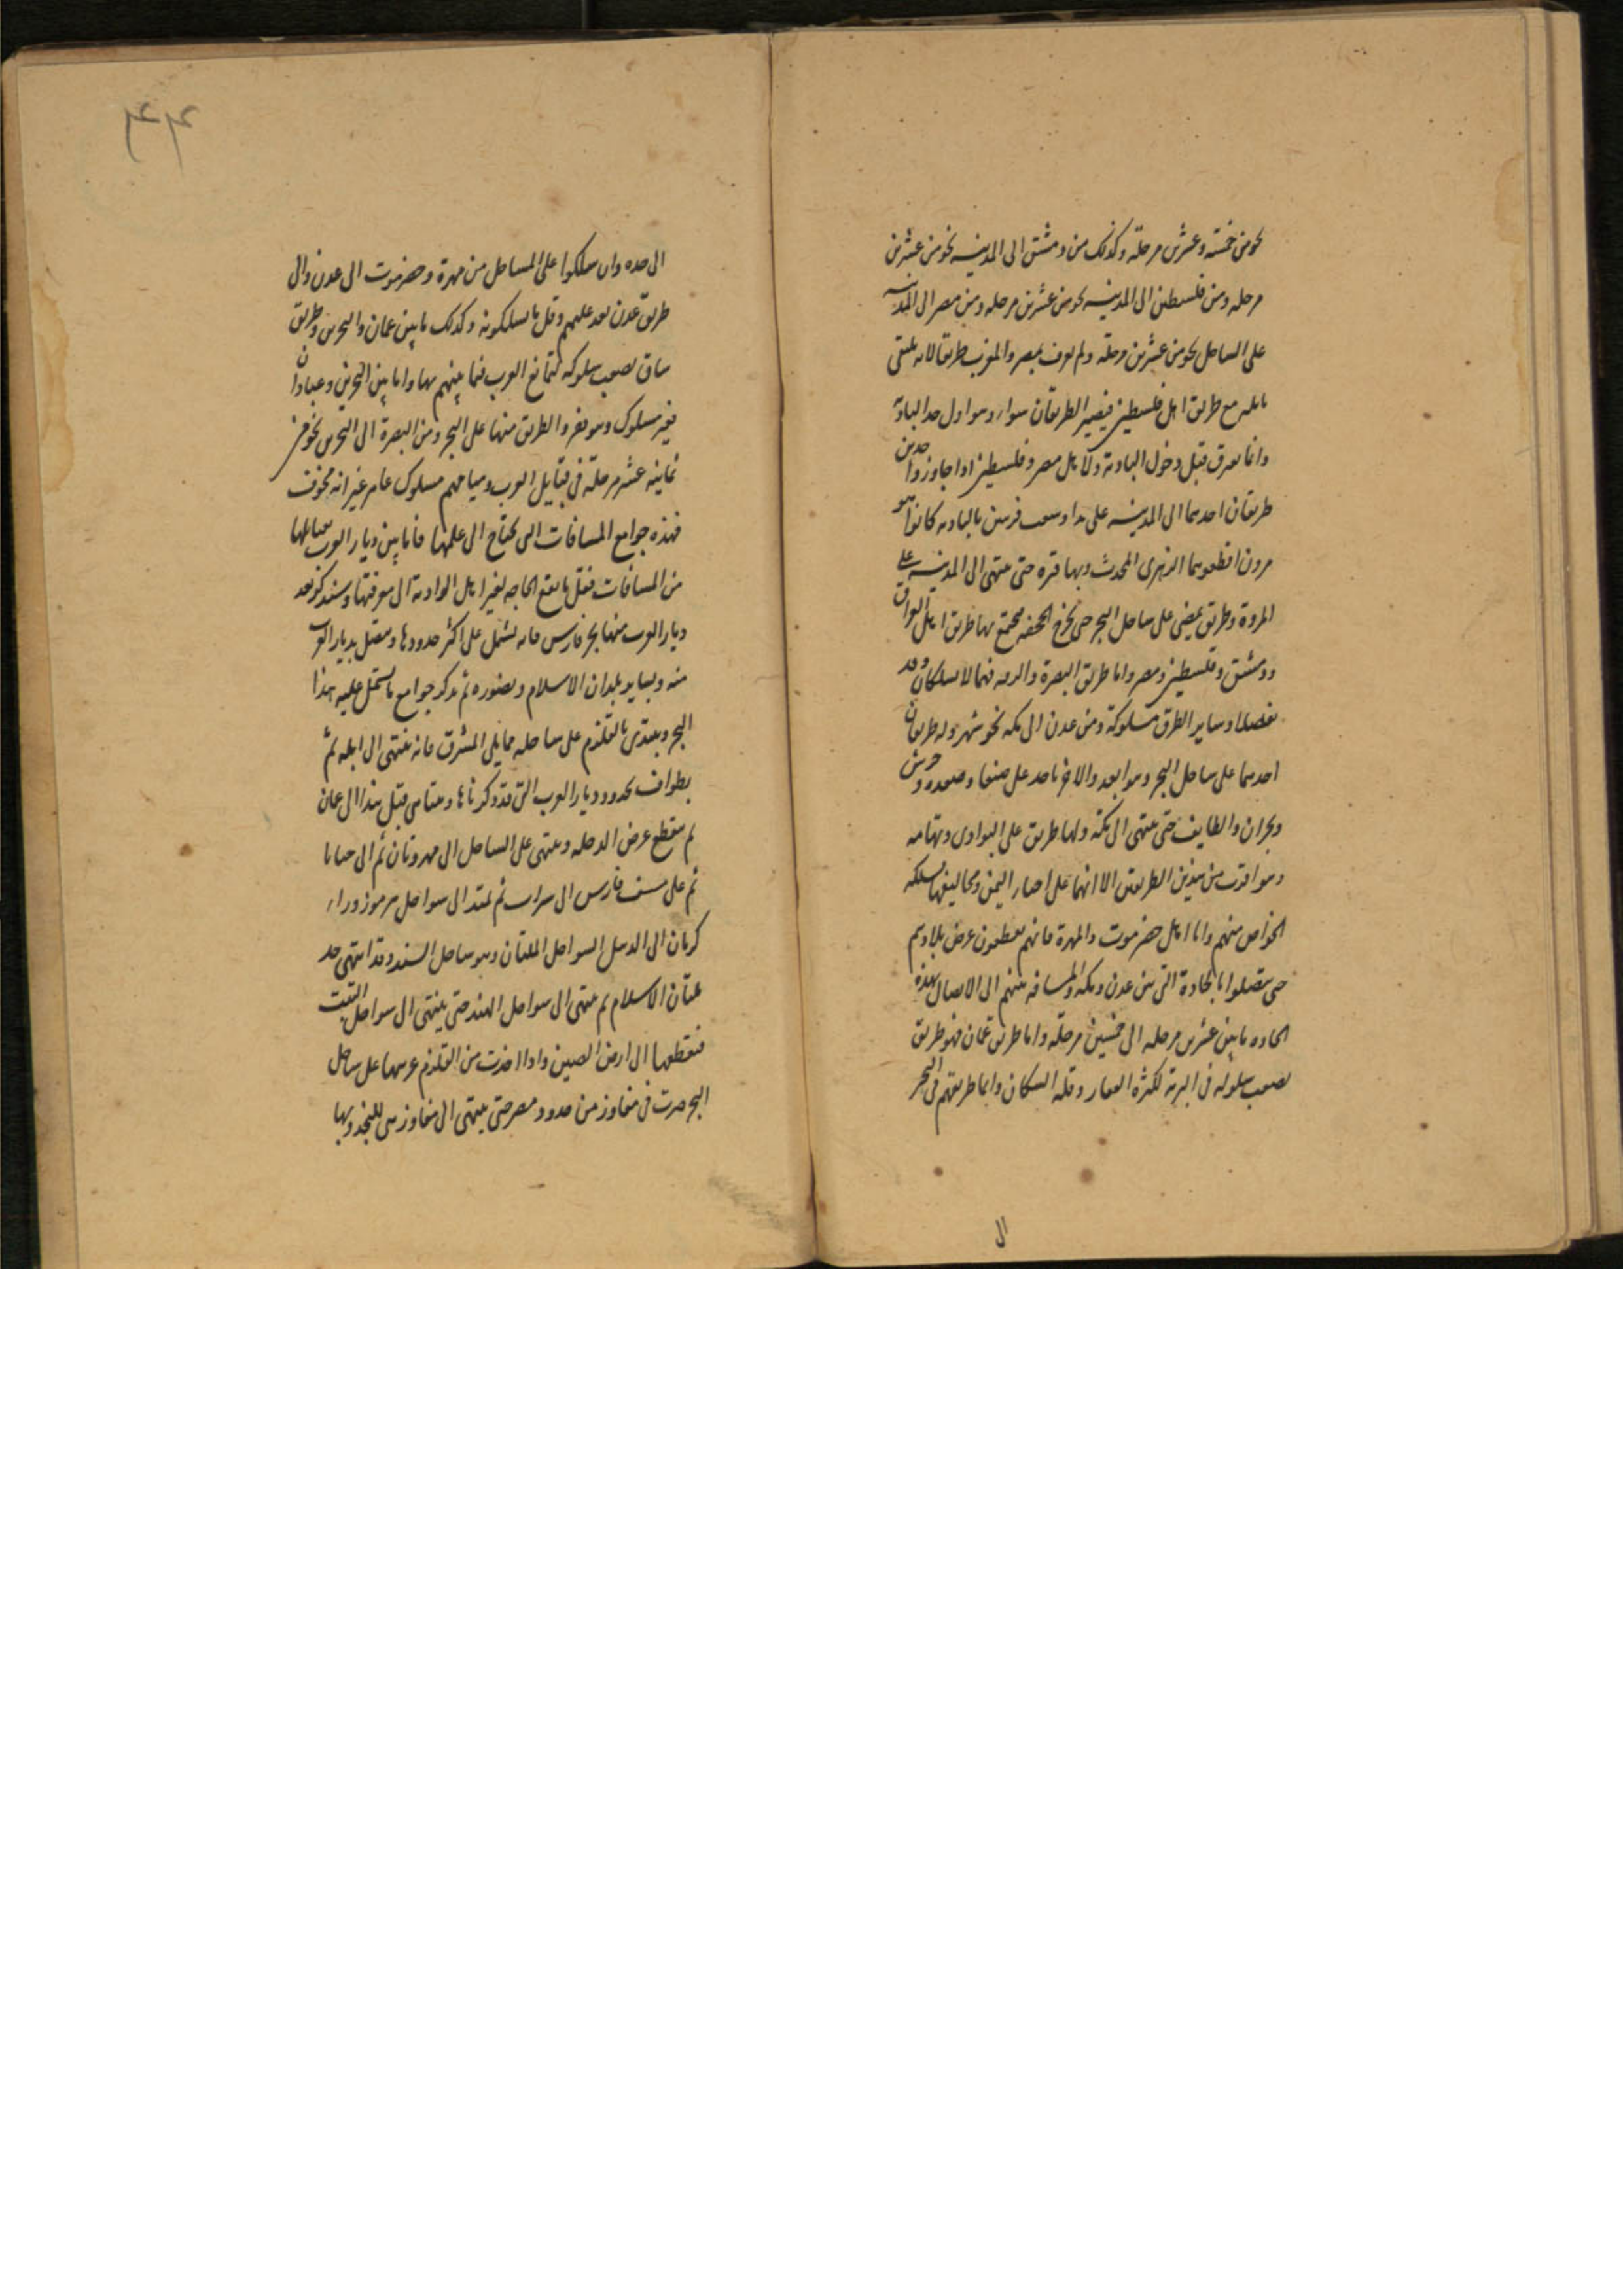 نحو من خمسه وعشرين مرحله وكذلك من دمشق الى المدينه نحو من عشرين
مرحله ومن فلسطين الى المدينه نحو من عشرين مرحله ومن مصر الى المدينه
على الساحل نحو من عشرين مرحله ولم نعرف بمصر والمغرب طريقا لانه يلتقى
بايله مع طريق اهل فلسطين فيصير الطريقان سواء وهو اول حد البادية
وانما يفرق قبل دخول البادية ولاهل مصر وفلسطين اذا جاوزوا مدين
طريقان احدهما الى المدينه على بدا وشعب قرية بالبادية كانوا بنو
مروان اقطعوهما الزهرى المحدث وبها قبره حتى ينتهى الى المدينه على
المروة وطريق يمضى على ساحل البحر حتى يخرج الجحفه فيجتمع بها طريق اهل العراق
ودمشق وفلسطين ومصر واما طريق البصرة والرقه فهما لا يسلكان وقد
تعطلا وساير الطرق مسلوكة ومن عدن الى مكه نحو شهر وله طريقان
احدهما على ساحل البحر وهو ابعد والاخر ياخذ على صنعا وصعده وجرش
ونجران والطايف حتى ينتهى الى مكه ولها طريق على البوادى وتهامه
وهو اقرب من هذين الطريقين الا انهما على احياء اليمن ومخاليفها يسلكه
الخواص منهم واما اهل حضرموت والمهرة فانهم يقطعون عرض بلادهم
حتى يتصلوا بالجادة التى بين عدن ومكه والمسافه منهم الى الاتصال بهذه
الجاده ما بين عشرين مرحله الى خمسين مرحله واما طريق عمان فهو طريق
يصعب سلوكه فى البرية لكثرة القفار وقله السكان وانما طريقهم فى البحر
الى
٢٤
الى جده وان سلكوا على الساحل من مهرة وحضرموت الى عدن والى
طريق عدن بعد عليهم وقل ما يسلكونه وكذلك ما بين عمان والبحرين وطريق
شاق يصعب سلوكه لتمانع العرب فيما بينهم بها واما بين البحرين وعبادان
فغير مسلوك وهو قفر والطريق منها على البحر ومن البصرة الى البحرين نحو من
ثمانية عشر مرحله فى قبايل العرب ومياههم مسلوك عامر غير انه مخوف
فهذه جوامع المسافات التى يحتاج الى علمها فاما بين ديار العرب لقبايلها
من المسافات فقل ما يقع الحاجه لغير اهل البادية الى معرفتها وسنذكر بعد
ديار العرب منها بحر فارس فانه يشتمل على اكثر حدودها ويتصل بديار العرب
منه وبساير بلدان الاسلام ونصوره ثم نذكر جوامع ما يشتمل عليه هذا
البحر ونبتدى بالقلزم على ساحله مما يلى المشرق فانه ينتهى الى ايله ثم
يطواف بحدود ديار العرب التى قد ذكرناها وبينا من قبل هذا الى عمان
ثم يقطع عرض الدجله وينتهى على الساحل الى مهروبان ثم الى جنابا
ثم على سيف فارس الى سيراف ثم يمتد الى سواحل هرموز وراء
كرمان الى الديبل السواحل الملتان وهو ساحل السند وقد انتهى حد
بلدان الاسلام ثم ينتهى الى سواحل الهند حتى ينتهى الى سواحل التبت
فيقطعها الى ارض الصين واذا اخذت من القلزم غربيها على ساحل
البحر سرت فى مفاوز من حدود مصر حتى ينتهى الى مفاوز هى للبجه وبها